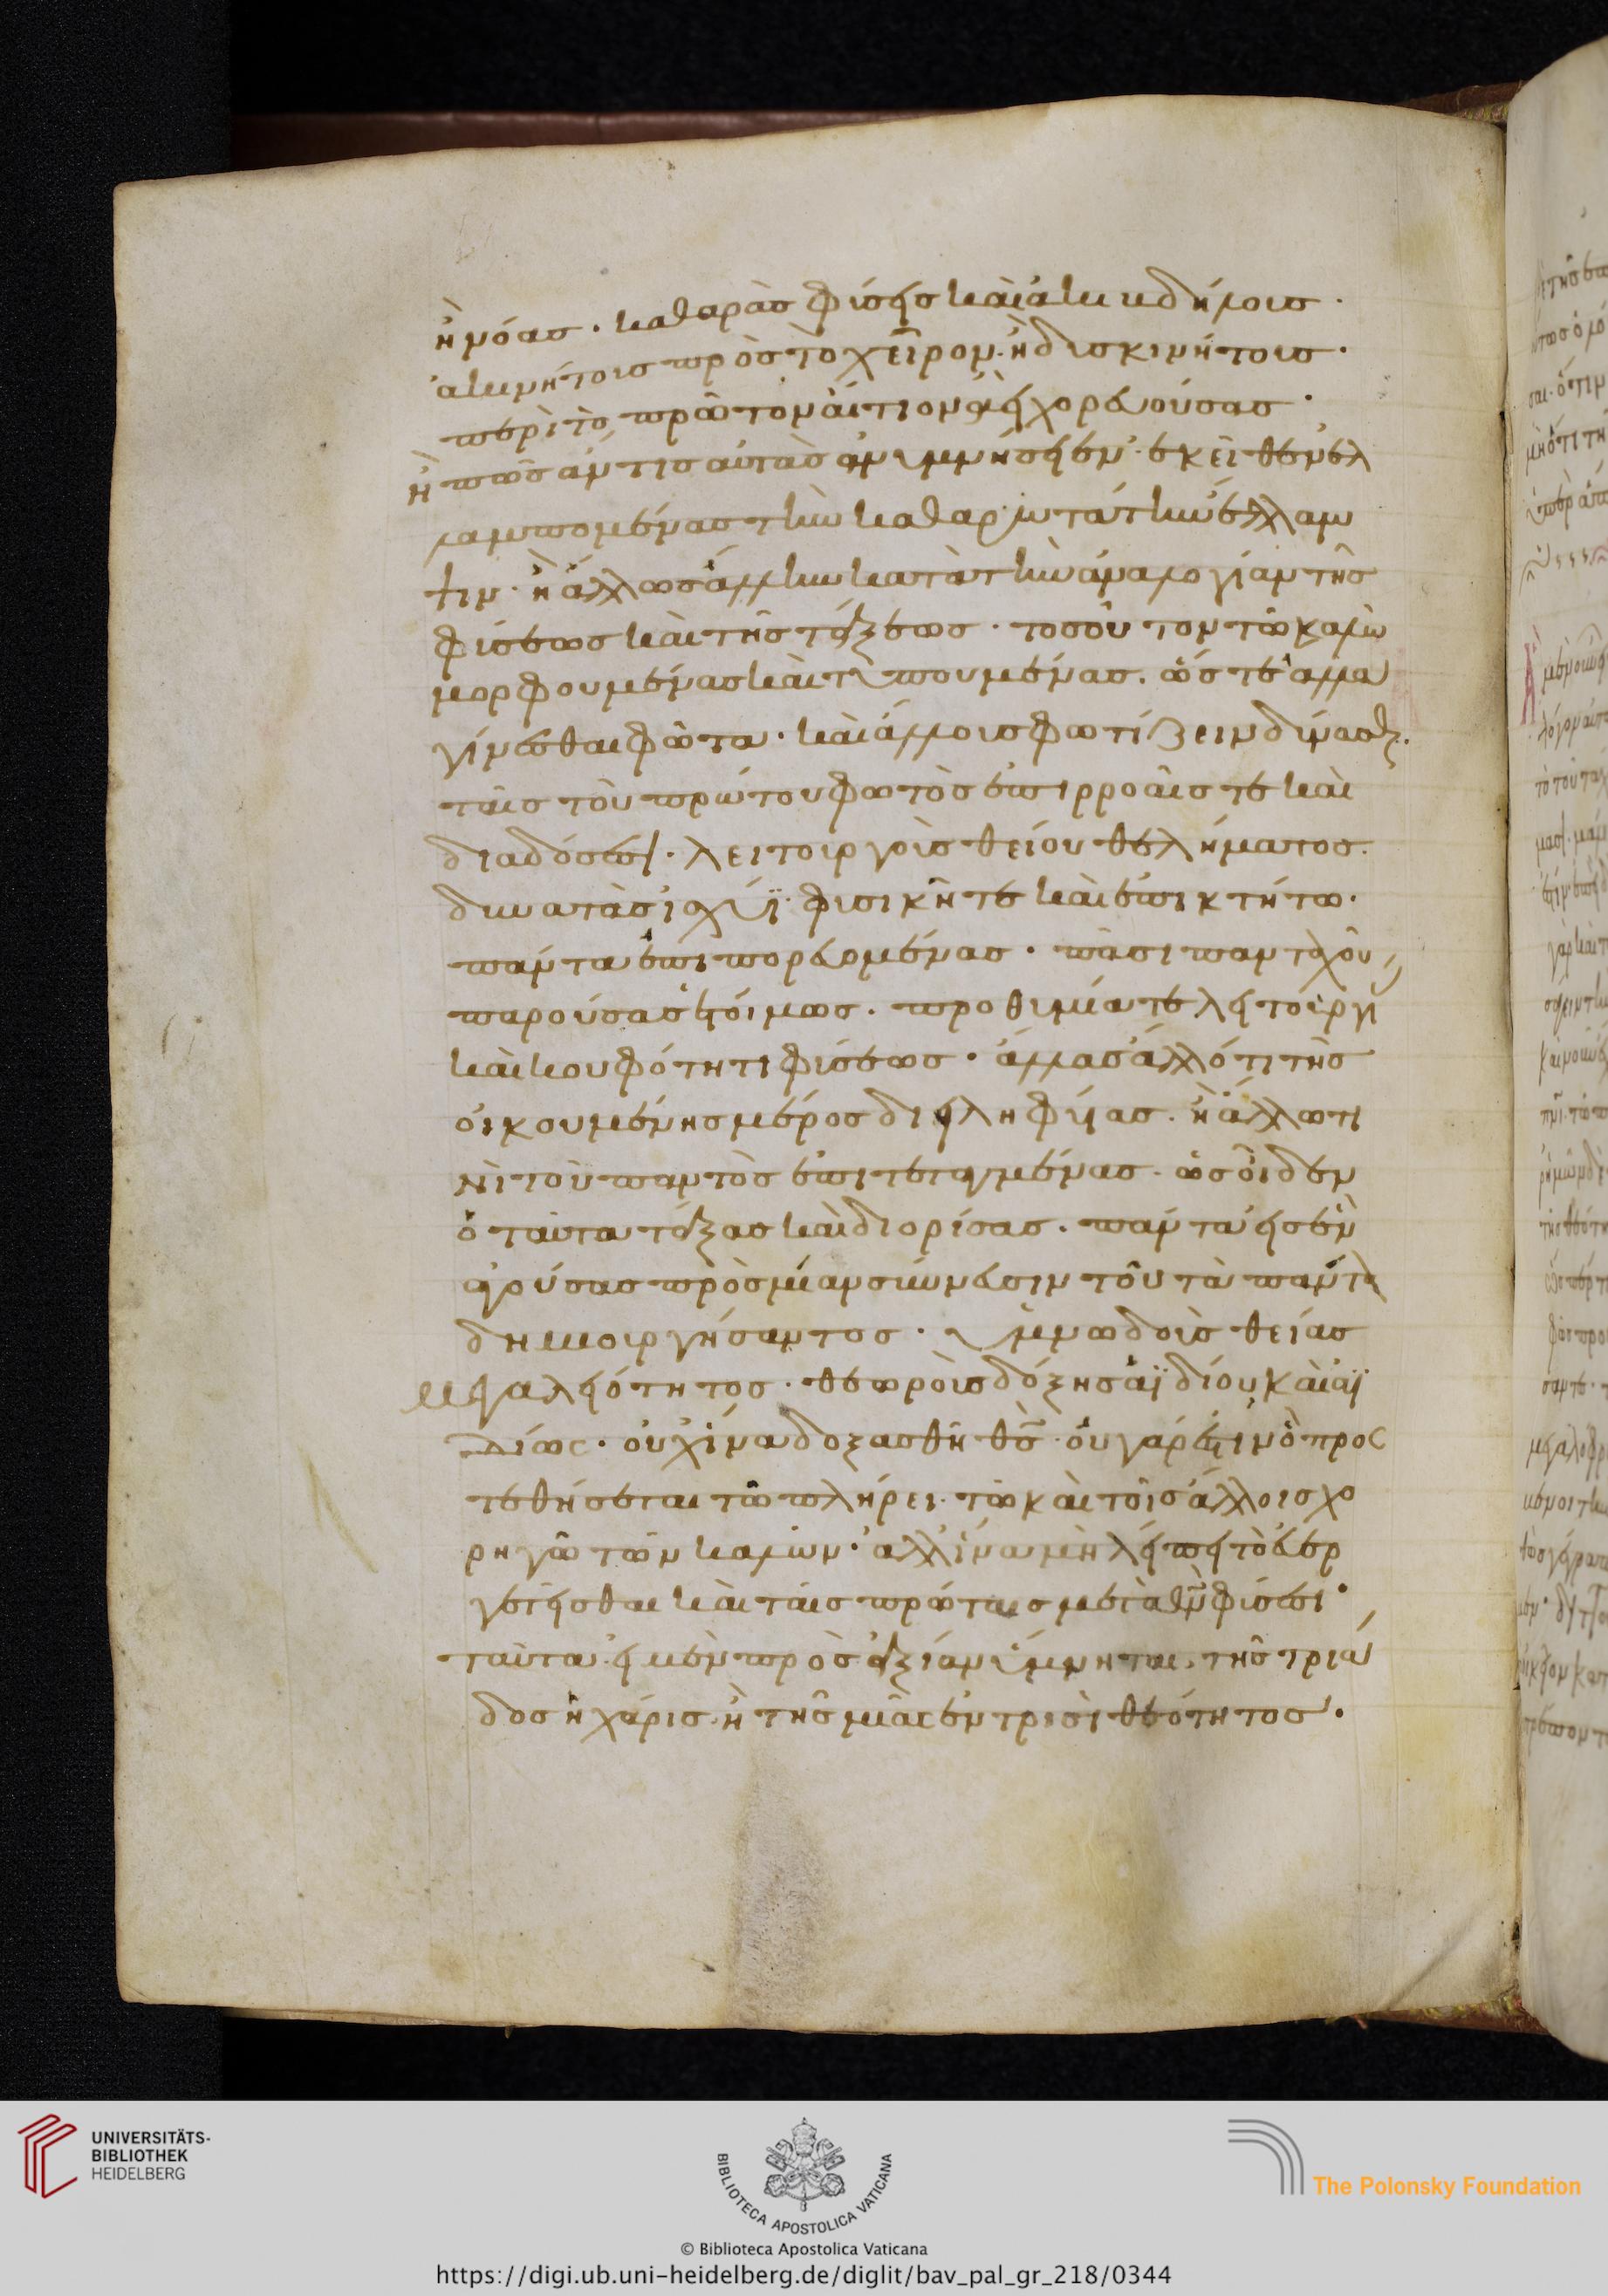 ἢ νόας· καθαρὰς φύσεις καὶ ἀκιβδήλους·
ἀκινήτους πρὸς τὸ χεῖρον· ἢ δυσκινήτους·
περὶ τὸ πρῶτον αἴτιον ἀεὶ χορευούσας·
ἢ πῶς ἄν τις αὐτὰς ἀνυμνήσειεν· ἐκεῖθεν ἐλ
λαμπομένας τὴν καθαρωτάτην ἔλλαμ
ψιν· ἢ ἄλλως ἄλλην κατὰ τὴν ἀναλογίαν τῆς
φύσεως καὶ τῆς τάξεως· τοσοῦτον τῶ καλῶ
μορφουμένας καὶ τυπουμένας· ὥστε ἄλλα
γίνεσθαι φῶτα· καὶ ἄλλους φωτίζειν δύνασθ.
ταῖς τοῦ πρώτου φωτὸς ἐπιρροαῖς τε καὶ
διαδόσεσι· λειτουργοὺς θείου θελήματος·
δυνατὰς ἰσχύϊ· φυσικῆ τε καὶ ἐπικτήτω·
πάντα ἐπιπορευομένας· πᾶσι πανταχοῦ
παρούσας ἑτοίμως· προθυμία τε λειτουργί
καὶ κουφότητι φύσεως· ἄλλας ἄλλό τι τῆς
οἰκουμένης μέρος διειληφυίας· ἢ ἄλλω τι
νὶ τοῦ παντὸς ἐπιτεταγμένας· ὡς οἶδεν
ὁ ταῦτα τάξας καὶ διορίσας· πάντα εἰς ἓν
ἀγούσας πρὸς μίαν σύννευσιν τοῦ τὰ πάντα
δημιουργήσαντος· ὑμνωδοὺς θείας
μεγαλειότητος· θεωροὺς δόξης ἀϊδίου καὶ ἀϊ
δίως· οὐχ ἵνα δοξασθῆ θς· οὐ γάρ ἐστιν ὃ προσ
τεθήσεται τῶ πλήρει· τῶ καὶ τοῖς ἄλλοις χο
ρηγῶ τῶν καλῶν· ἀλλ ἵνα μὴ λείπει τὸ εὐερ
γετεῖσθαι καὶ ταῖς πρώταις μετὰ θν φύσεσι·
ταῦτα εἰ μὲν πρὸς ἀξίαν ὕμνηται· τῆς τριά
δος ἡ χάρις· ἢ τῆς μιᾶς ἐν τρισὶ θεότητος·
UNIVERSITÄTS-
BIBLIOTHEK
HEIDELBERG
BIBLIOTECA APOSTOLICA VATICANA
The Polonsky Foundation
© Biblioteca Apostolica Vaticana
https://digi.ub.uni-heidelberg.de/diglit/bav_pal_gr_218/0344